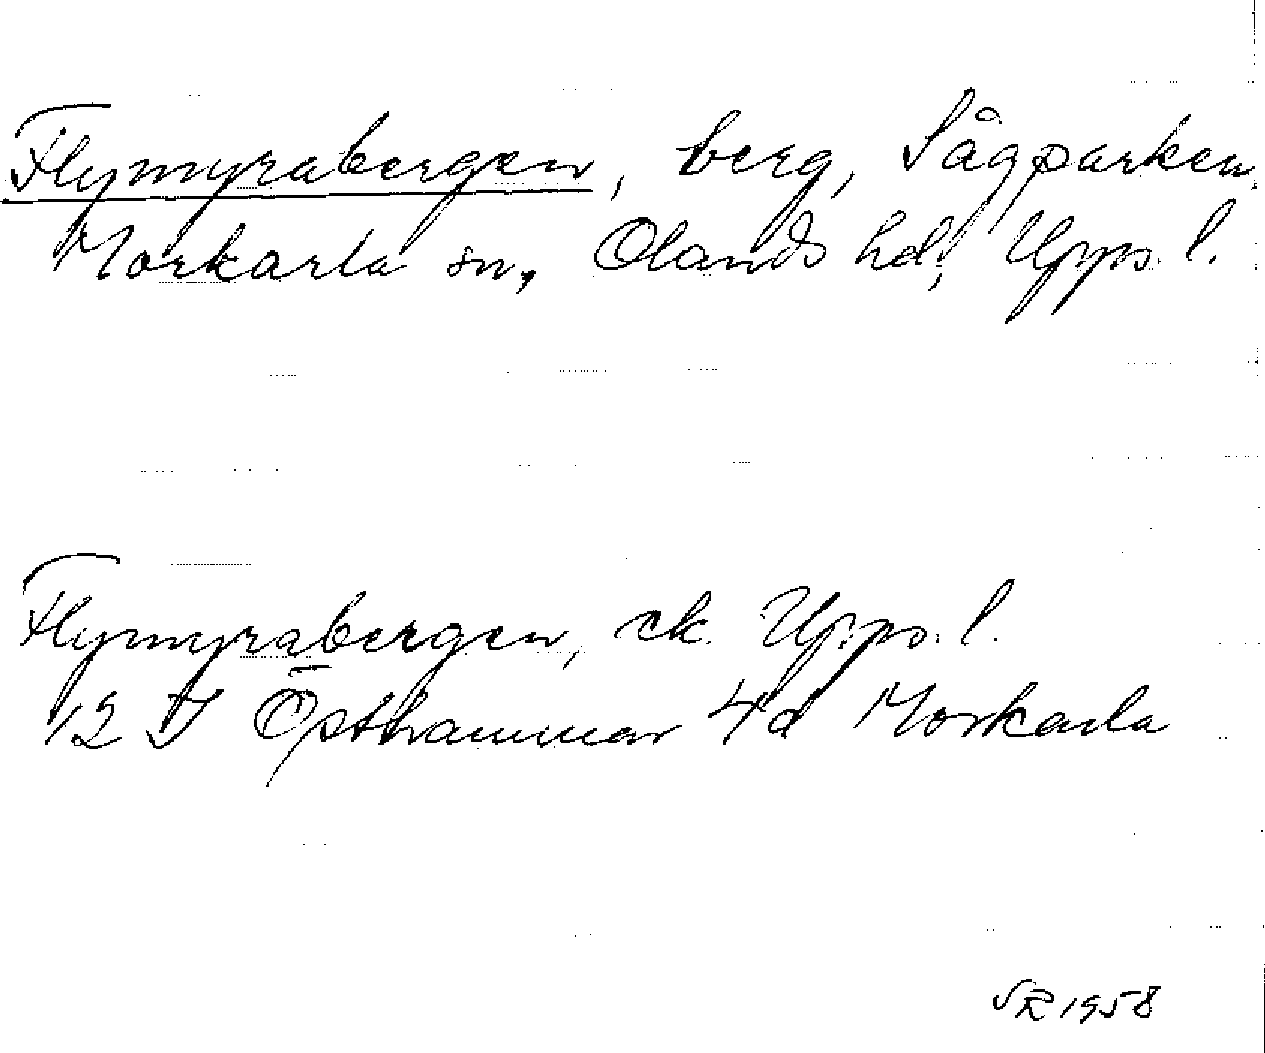 Flymyrabergen, berg, Sågparken,
Morkarla sn, Olands hd, Upps. l.
Flymyrabergen, ek. Upps. l.
12 I Östhammar 4d Morkarla
SR 1958